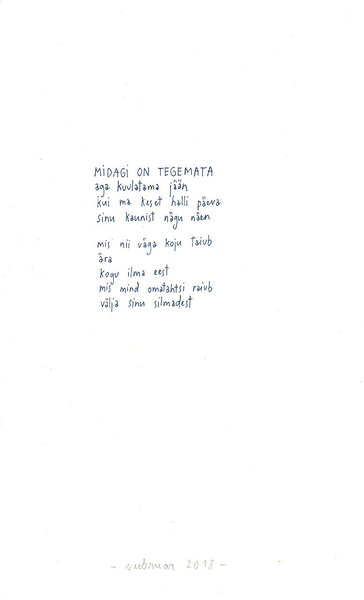 MIDAGI ON TEGEMATA
aga kuulatama jään
kui ma keset halli päeva
sinu kaunist nägu näen
mis nii väga koju taiub
ära
kogu ilma eest
mis mind omatahtsi raiub
välja sinu silmadest
~ veebruar 2018 ~